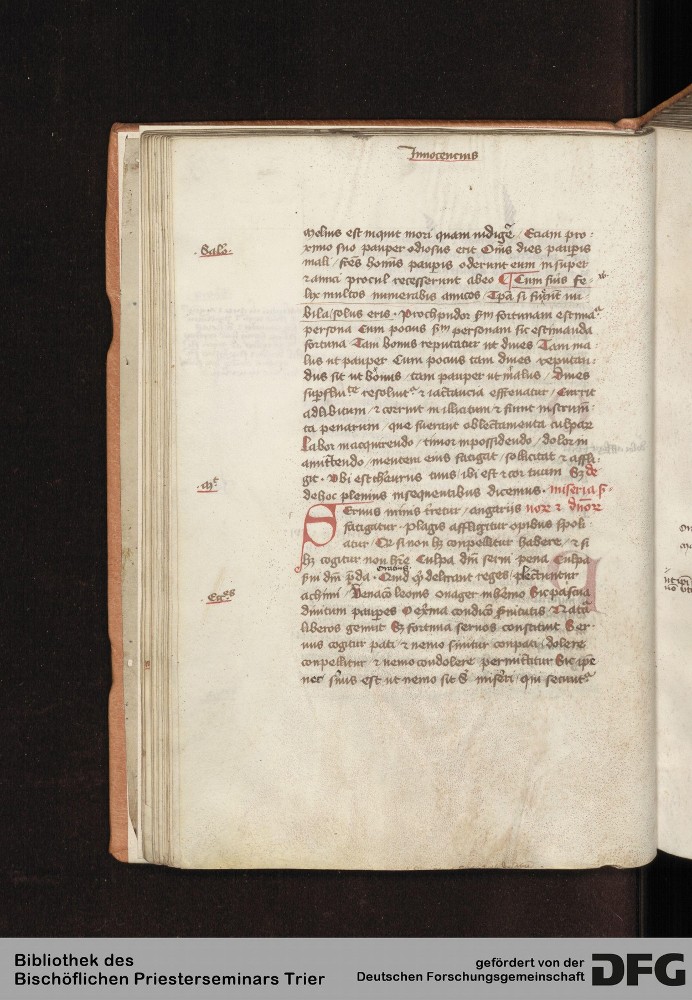 Innocencius
Melius est inquit mori quam indige͂ / Eciam pro:
Salo͂.
ximo suo pauper odiosus erit Om͂s dies paup͂is
mali / fr͂es homi͂s paupis oderunt eum insuper
et amici procul recesserunt abeo Cum fuis fe:
lix multos numerabis amicos / Tpa͂ si fueri͂t nu
bila / solus eris. Prochpudor s͂m fortunam estimat͂
persona Cum pocius s͂m personam sic estimanda
fortuna Tam bonus reputatur ut diues Tam ma:
lus ut pauper Cum pocius tam diues reputan:
dus sit ut bo͂nus / tam pauper ut malus / Diues
sup͂flui͂te resoluit͂ et iactancia effrenatur / Currit
adlibitum / et corruit in illicitum et fiunt instrum͂:
ta penarum / que fuerant oblectamenta culpar͂
Labor inacquirendo / timor inpossidendo / dolor in
amittendo / mentem eius fatigat / sollicitat et affli:
git. Vbi est thesaurus tuus / ibi est et cor tuum Sz de
M͂t
dehoc plenius insequentibus dicemus. miseria s͂:
Seruus minis t͂retur / angariis uor͂ et d͂nor͂
fatigatur. plagis affligitur opibus spoli:
atur / Qr si non hz conpellitur habere / et si
hz cogitur non h͂re Culpa dn͂i serui pena Culpa
s͂ui dn͂i p͂da. Quid q͂d delirant reges / plectuntur
Oracius
achiui / Venac͂o leonis onager inh͂emo Sic pascua
Eccs͂
diuitum paup͂es O ext͂ma condic͂o s͂uitutis Nat͂a
liberos genuit Sz fortuna seruos constituit Ser:
uus cogitur pati / et nemo sinitur conpati / dolere
conpellitur et nemo condolere permittitur Sic ip͂e
nec suus est ut nemo sit s͂ miseri / qui secunt͂
Bibliothek des
Bischöflichen Priesterseminars Trier
gefördert von der
Deutschen Forschungsgemeinschaft
DFG